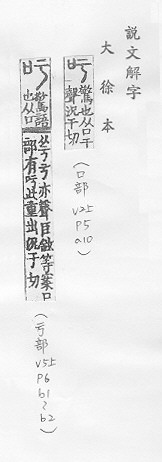 說文解字
大徐本
吁驚也从口于
聲況于切
(口部 v2上 P5 a10)
吁驚語
也从口
从亏亏亦聲臣鉉等案口
部有吁此重出況于切
(亏部 v5上 P6 b1~b2)